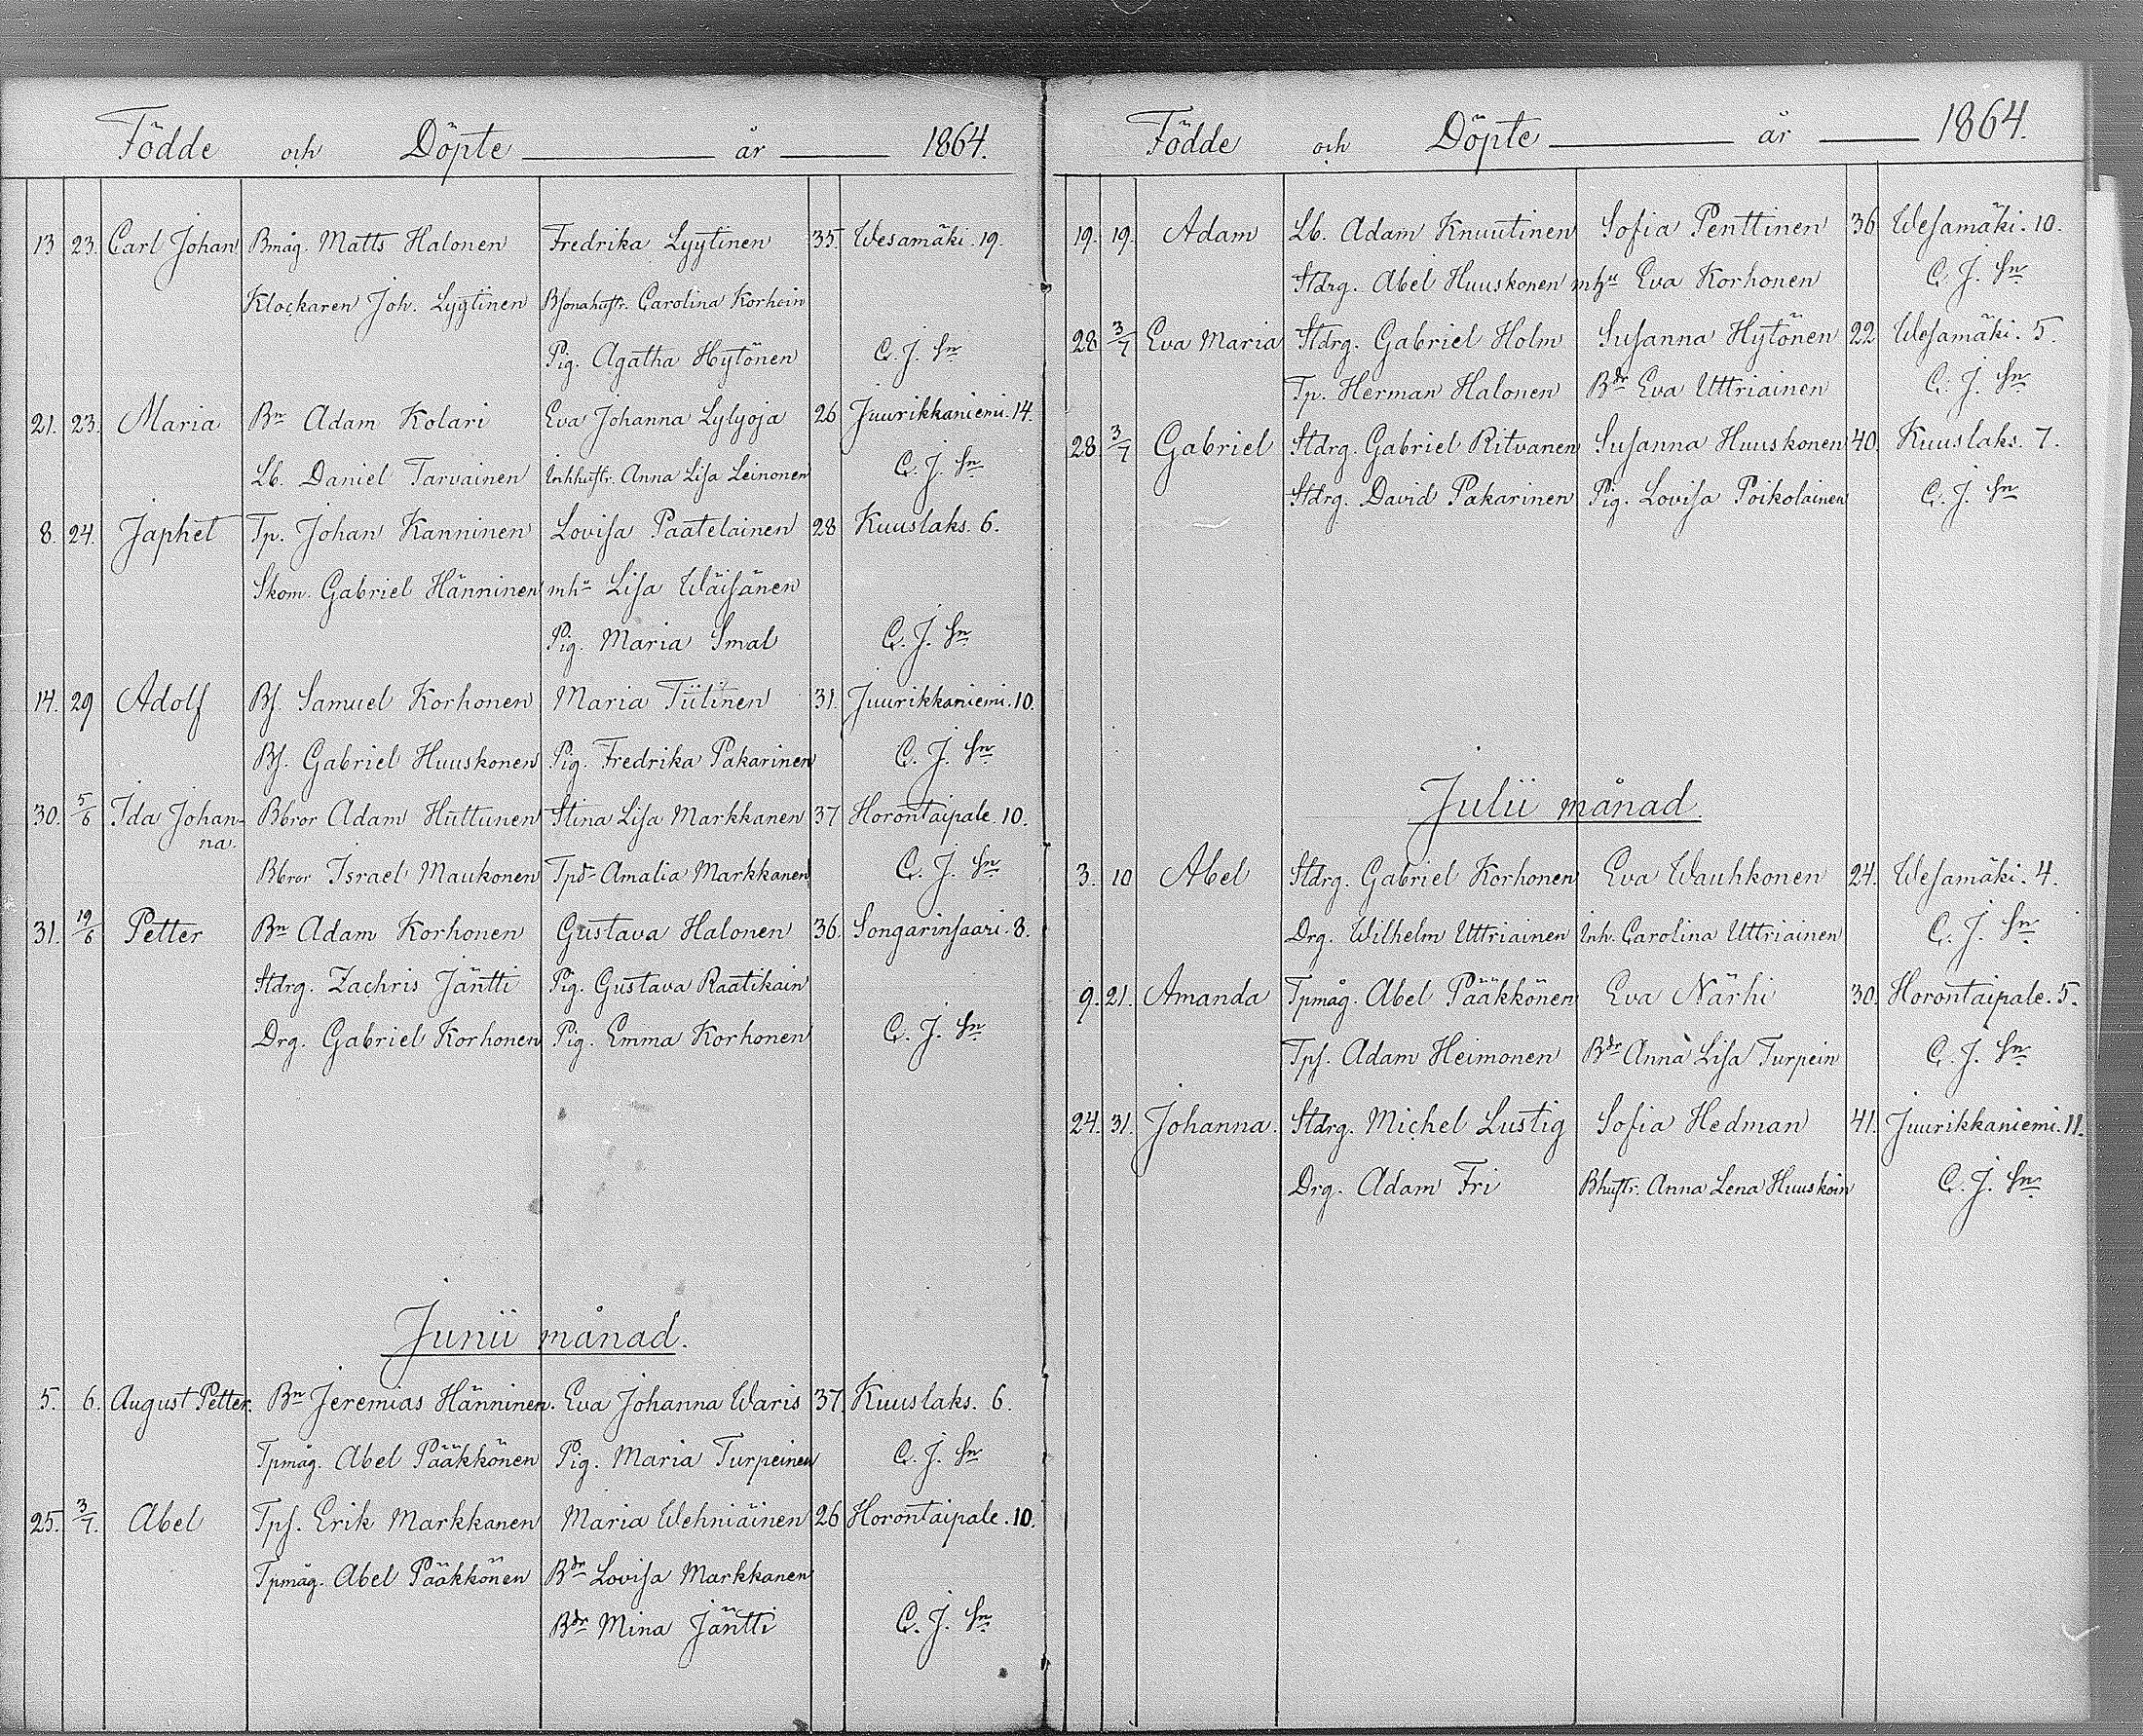 Födde och Döpte år 1864.
13 23. Carl Johan Bmåg. Matts Halonen Fredrika Lyytinen 35. Wesamäki. 19.
Klockaren Joh. Lyytinen Bsonahustr. Carolina Korhoin
Pig. Agatha Hytönen C. J. Sn
21. 23. Maria Bn Adam Kolari Eva Johanna Lylyoja 26 Juurikkaniemi. 14.
Lb. Daniel Tarvainen Inhhustr. Anna Lisa Leinonen C. J. Sn
8. 24. Japhet Tp. Johan Kanninen Lovisa Paatelainen 28 Kuuslaks. 6.
Skom. Gabriel Hänninen mhu Lisa Wäisänen
Pig. Maria Smal C. J. Sn
14. 29 Adolf Bs. Samuel Korhonen Maria Tiitinen 31. Juurikkaniemi. 10.
Bs. Gabriel Huuskonen Pig. Fredrika Pakarinen C. J. Sn
30. 5/6 Ida Johan- Bbror Adam Huttunen Stina Lisa Markkanen 37 Horontaipale. 10.
na.
Bbror Israel Maukonen Tpdr Amalia Markkanen C. J. Sn
31. 19/6 Petter Bn Adam Korhonen Gustava Halonen 36. Songarinsaari. 8.
Stdrg. Zachris Jäntti Pig. Gustava Raatikain
Drg. Gabriel Korhonen Pig. Emma Korhonen C. J. Sn
Junii månad.
5. 6. August Petter. Bn Jeremias Hänninen. Eva Johanna Waris 37. Kuuslaks. 6.
Tpmåg. Abel Pääkkönen Pig. Maria Turpeinen C. J. Sn
25. 3/7. Abel Tps. Erik Markkanen Maria Wehniäinen 26 Horontaipale. 10.
Tpmåg. Abel Pääkkönen Bdr Lovisa Markkanen
Bdr Mina Jäntti C. J. Sn
Födde och Döpte år 1864.
19. 19. Adam Lb. Adam Knuutinen Sofia Penttinen 36 Wesamäki. 10.
Stdrg. Abel Huuskonen mhu Eva Korhonen C. J. Sn
28 3/7 Eva Maria Stdrg. Gabriel Holm Susanna Hytönen 22 Wesamäki. 5.
Tp. Herman Halonen Bdr Eva Uttriainen C. J. Sn
28 3/7 Gabriel Stdrg. Gabriel Ritvanen Susanna Huuskonen 40. Kuuslaks. 7.
Stdrg. David Pakarinen Pig. Lovisa Poikolainen C. J. Sn
Julii månad.
3. 10 Abel Stdrg. Gabriel Korhonen Eva Wauhkonen 24. Wesamäki. 4.
Drg. Wilhelm Uttriainen Inh. Carolina Uttriainen C. J. Sn
9. 21. Amanda Tpmåg. Abel Pääkkönen Eva Närhi 30. Horontaipale. 5.
Tps. Adam Heimonen Bdr Anna Lisa Turpein C. J. Sn
24. 31. Johanna. Stdrg. Michel Lustig Sofia Hedman 41. Juurikkaniemi. 11.
Drg. Adam Fri Bhustr. Anna Lena Huuskoin C. J. Sn